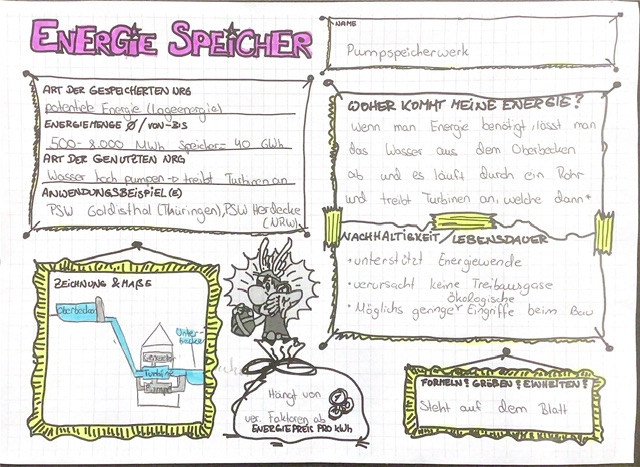 ENERGIE SPEICHER
NAME
Pumpspeicherwerk
ART DER GESPEICHERTEN NRG
potentiele Energie (Lageenergie)
ENERGIEMENGE Ø / VON-BIS
500-8.000 MWh Speicher= 40 GWh
ART DER GENUTZTEN NRG
Wasser hoch pumpen → treibt Turbinen an
ANWENDUNGSBEISPIEL(E)
PSW Goldisthal (Thüringen), PSW Herdecke
(NRW)
WOHER KOMMT MEINE ENERGIE?
Wenn man Energie benötigt, lässt man
das Wasser aus dem Oberbecken
ab und es läuft durch ein Rohr
und treibt Turbinen an, welche dann+
NACHHALTIGKEIT / LEBENSDAUER
• unterstützt Energiewende
• verursacht keine Treibhausgase
ökologische
• Möglichs geringe Eingriffe beim Bau
ZEICHNUNG & MAßE
Oberbecken
Unter-
becken
Generator
Turbine
Pumpe
Hängt von
ver. Faktoren ab
ENERGIEPREIS PRO kWh
FORMELN? GRÖßEN? EINHEITEN?
Steht auf dem Blatt